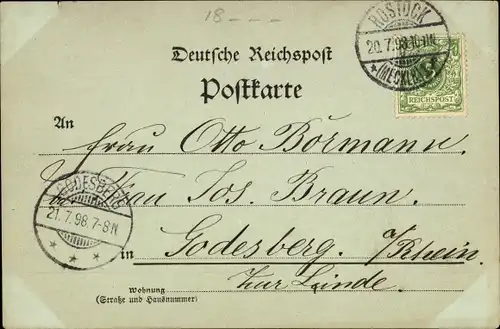 18
ROSTOCK
20.7.98.10-11N
(MECKLB)
REICHSPOST
Deutsche Reichspost
Postkarte
An
Frau Otto Börmann.
Frau Jos. Braun.
GODESBERG
21.7.98.7-8N
in Godesberg. a/Rhein.
Zur Linde.
Wohnung
(Straße und Hausnummer)